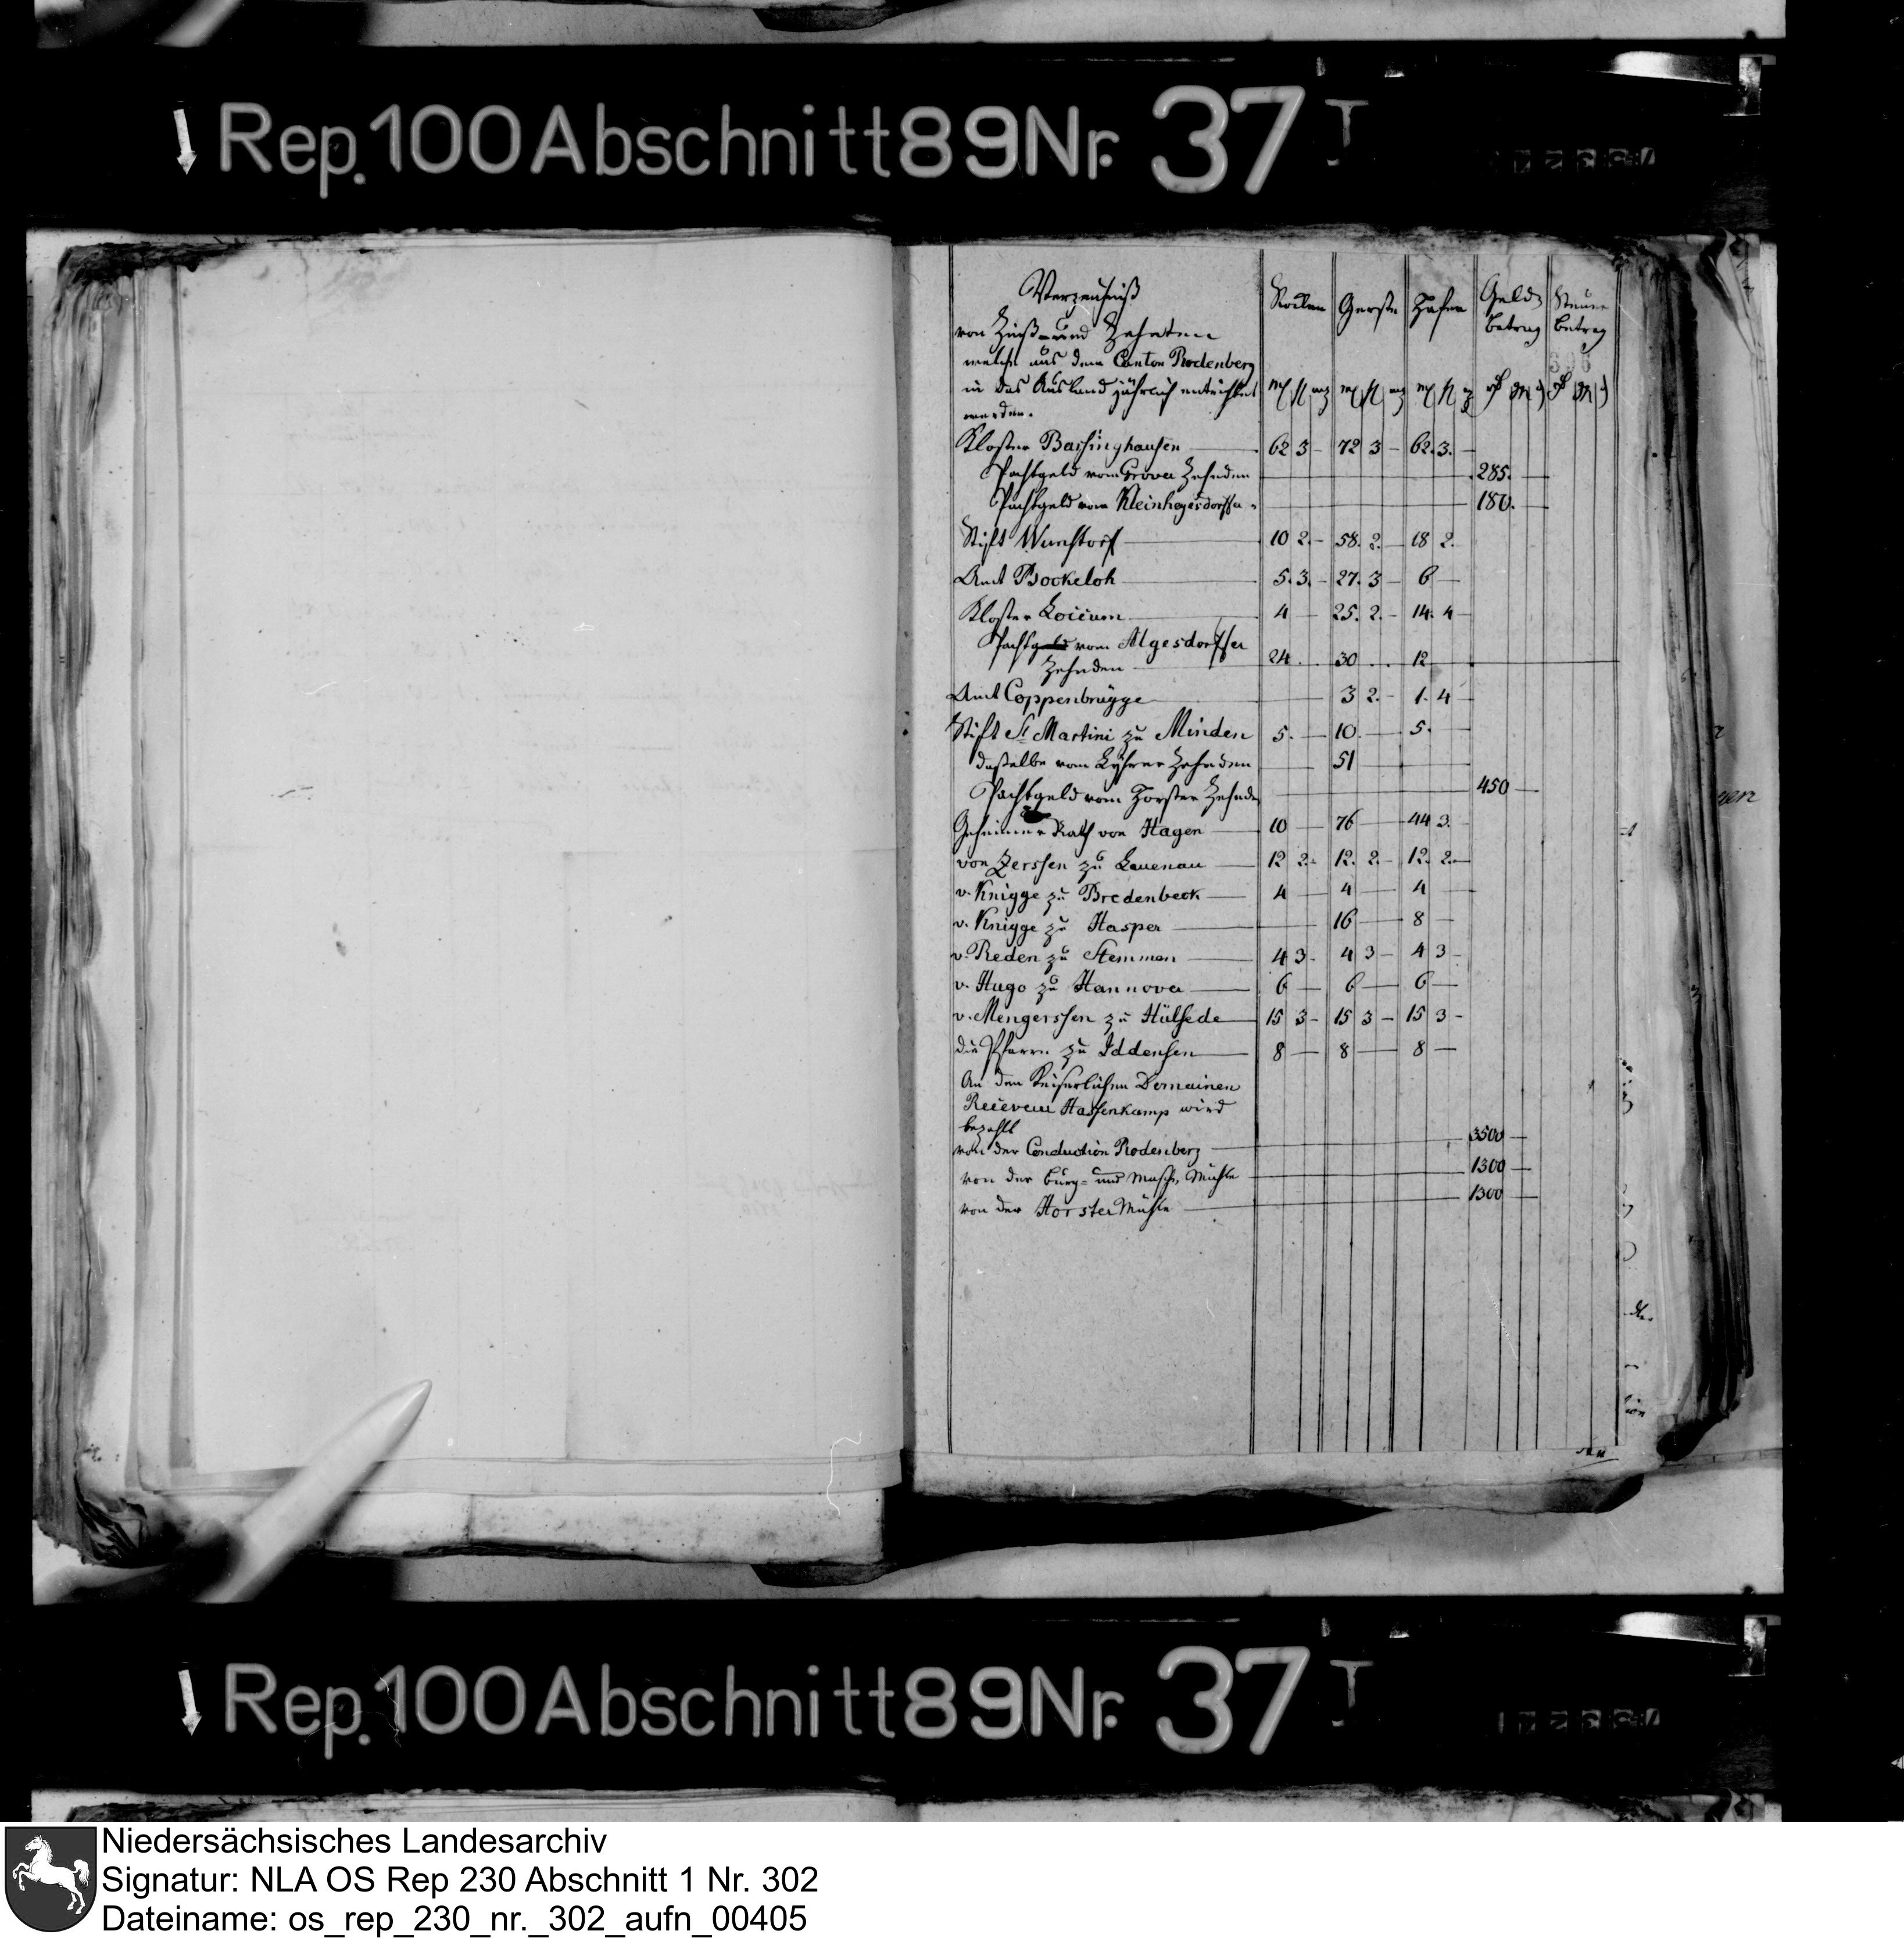 Rep. 100 Abschnitt 89 Nr. 37 I
Verzeichniß
von Zinß- und Zehnten
welche aus dem Canton Rodenberg
in das Ausland jährlich entrichtet
werden.
Rocken Gerste Hafer Geld Betrag Steuer Betrag
Kloster Barsinghausen 62 3 - 72 3 - 62. 3. -
Pachtgeld vom Grover Zehnden 285. -
Pachtgeld vom Kleinhegesdorffer 180. -
Stift Wunstorf 10 2. - 58. 2. - 18 2.
Amt Bockeloh 5. 3. - 27. 3 - 6 -
Kloster Loccum 4 - 25. 2. - 14. 4 -
Pachtgeld vom Algesdorffer
Zehnden 24. 30 12
Amt Coppenbrügge 3 2. - 1. 4 -
Stift St Martini zu Minden 5. - 10. - 5. -
dasselbe vom Zehnden 51
Pachtgeld vom Horster Zehnden 450 -
Geheimer Rath von Hagen 10 - 76 - 44 3.
von Zerssen zu Lauenau 12 2. - 12. 2. - 12. 2. -
v. Knigge zu Bredenbeck 4 - 4 - 4 -
v. Knigge zu Hasper 16 - 8 -
v. Reden zu Stemmen 4 3 - 4 3 - 4 3 -
v. Hugo zu Hannover 6 - 6 - 6 -
v. Mengerssen zu Hülsede 15 3 - 15 3 - 15 3 -
die Pfarre zu Iddensen 8 - 8 - 8 -
An den Keiserlichen Domainen
Receveur Hassenkamp wird
bezahlt
von der Conduction Rodenberg 3500 -
von der Burg- und Masch Mühle 1300 -
von der Horster Mühle 1300 -
Rep. 100 Abschnitt 89 Nr. 37 I
Niedersächsisches Landesarchiv
Signatur: NLA OS Rep 230 Abschnitt 1 Nr. 302
Dateiname: os_rep_230_nr._302_aufn_00405